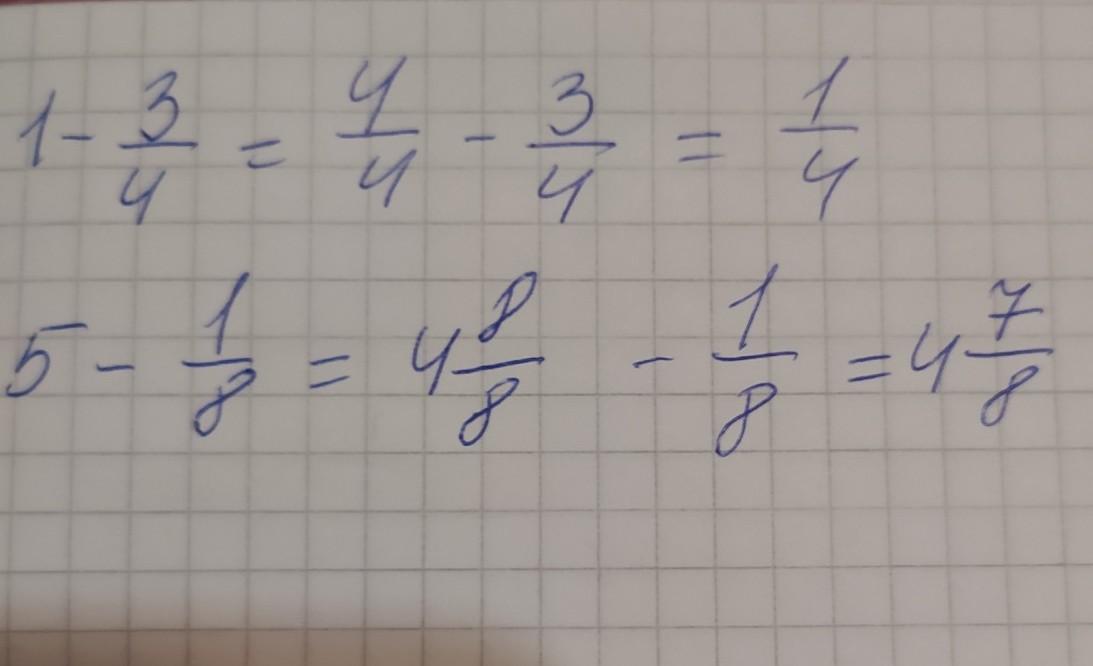 1 - 3/4 = 4/4 - 3/4 = 1/4
5 - 1/8 = 4 8/8 - 1/8 = 4 7/8